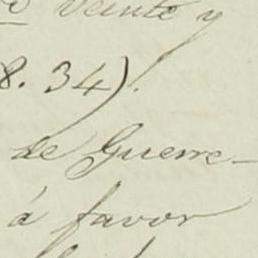 veinte y
8. 34).
de Guerre-
á favor